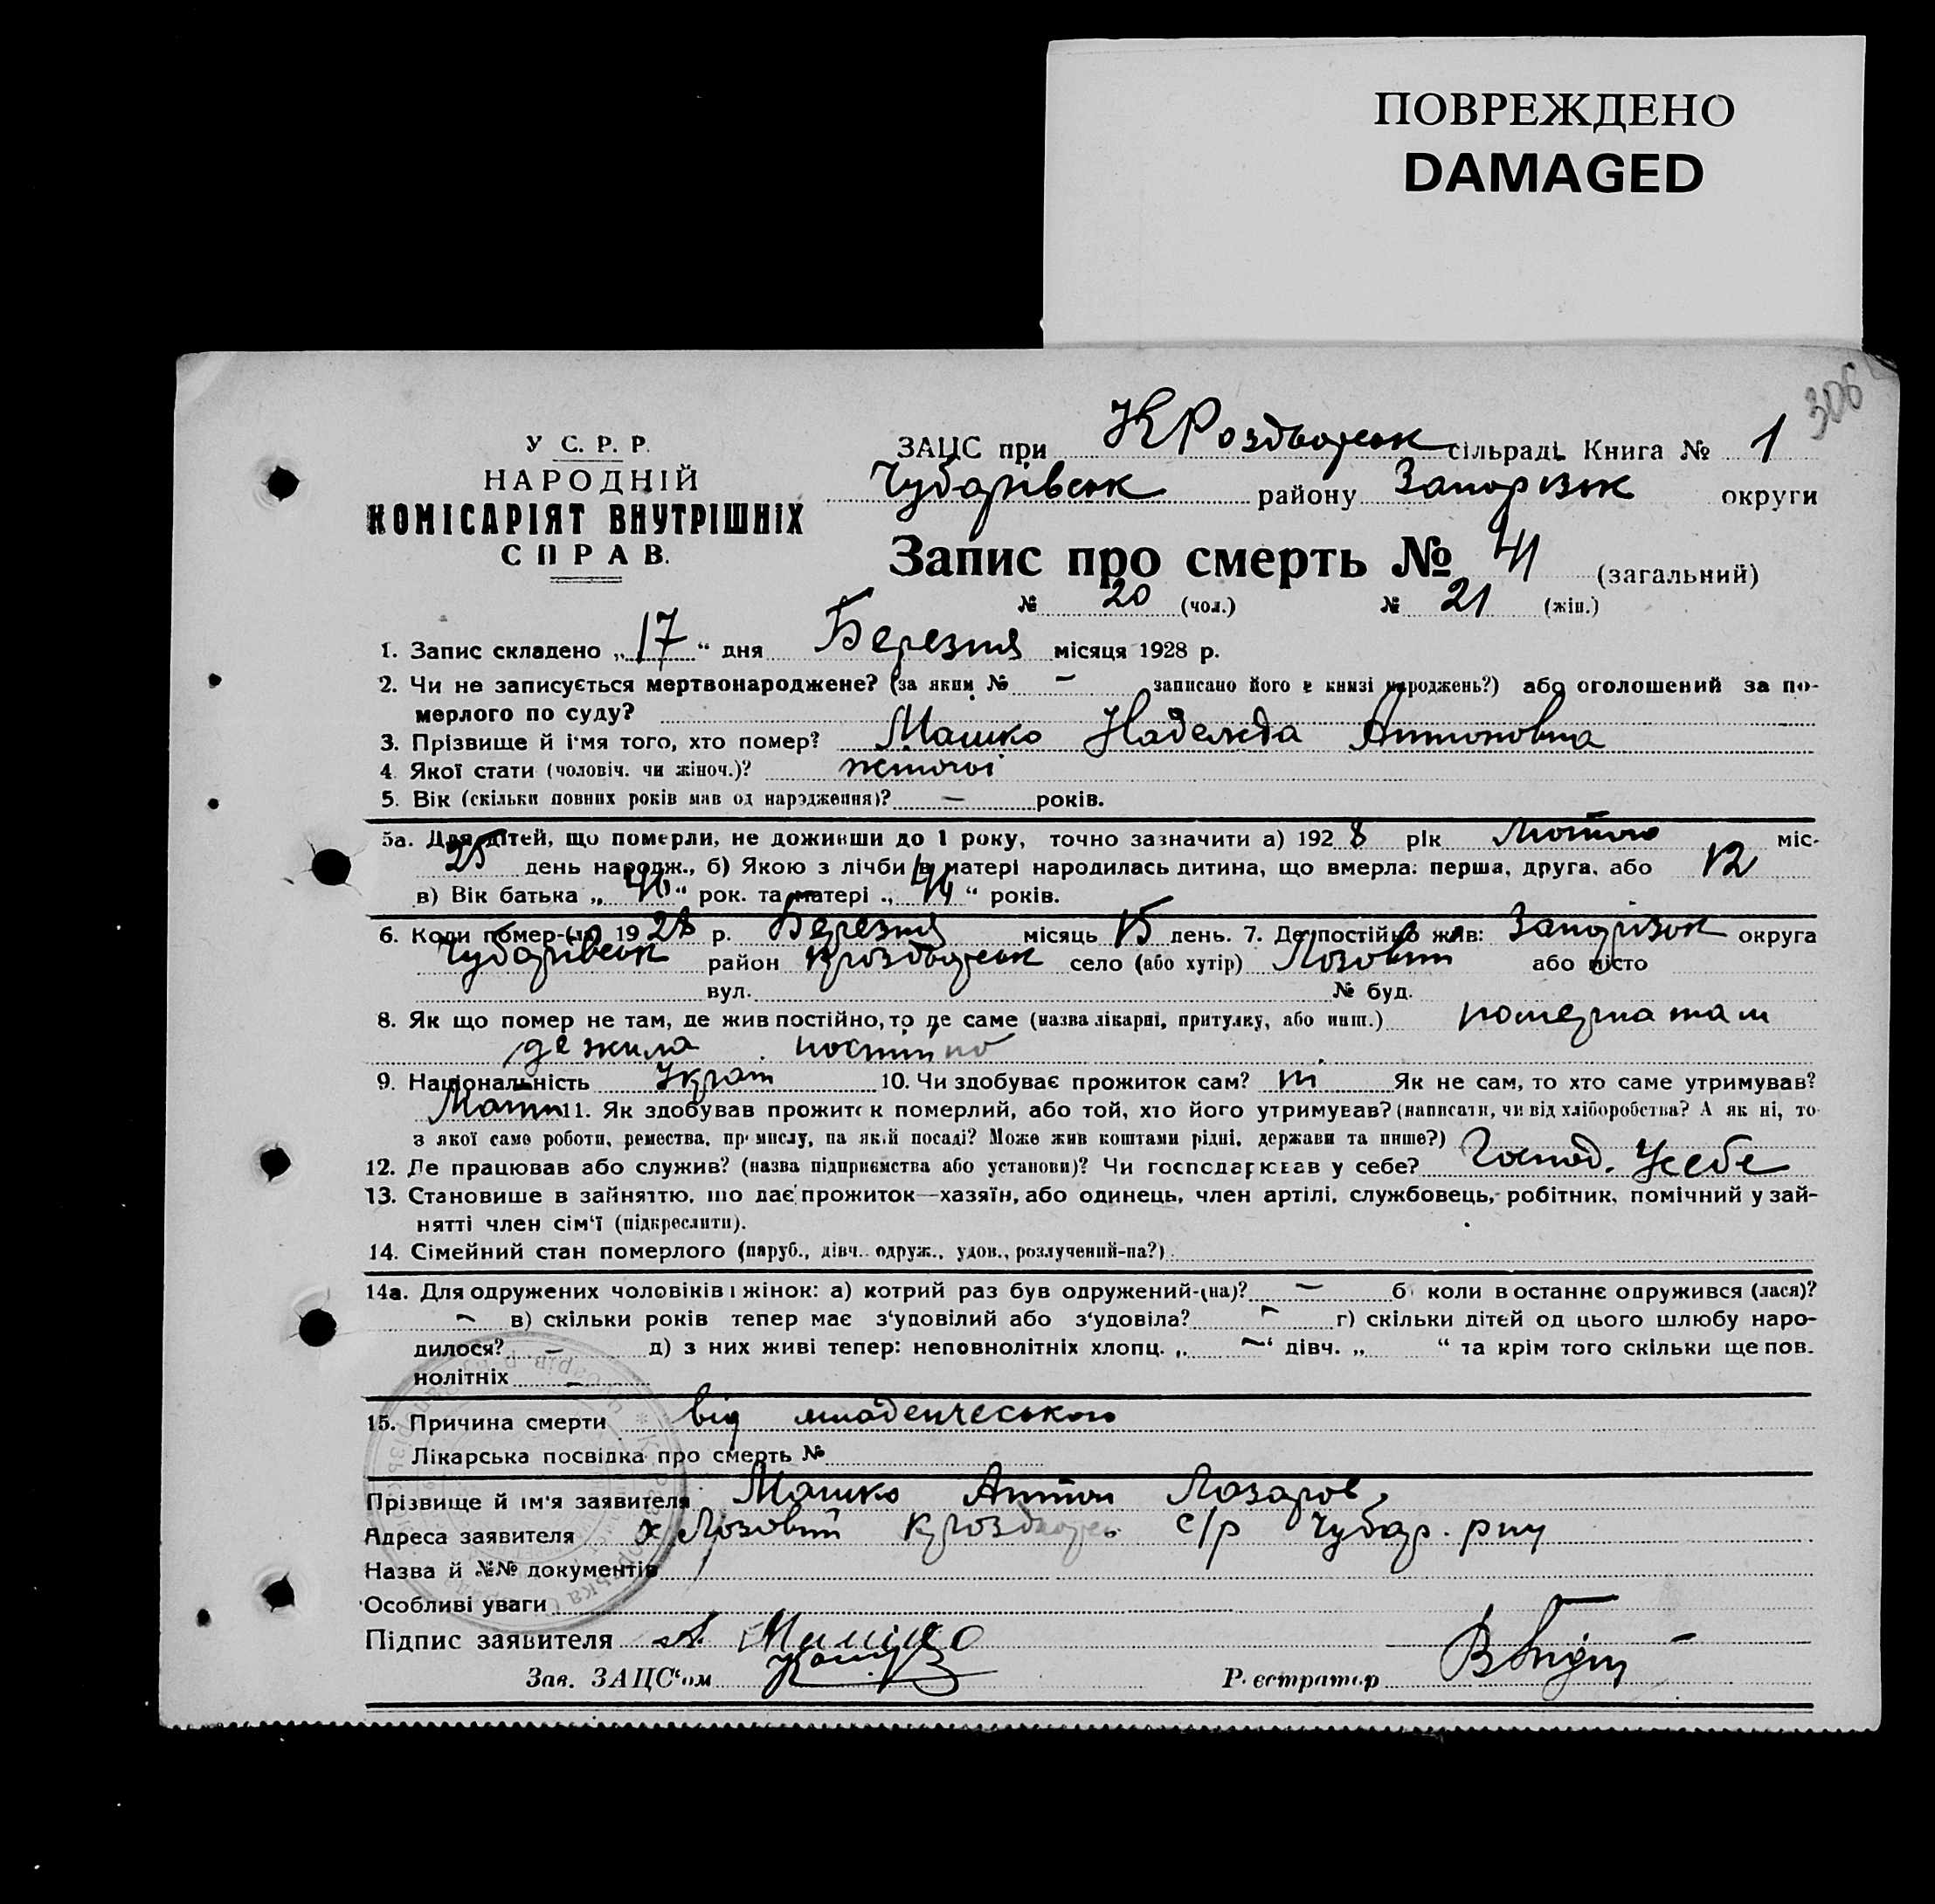 ПОВРЕЖДЕНО
DAMAGED
306
У С. Р. Р.
НАРОДНІЙ
КОМІСАРІЯТ ВНУТРІШНІХ
СПРАВ.
ЗАЦС при сільраді Книга № 1
Чубарівськ району Запорізьк округи
Запис про смерть № 41 (загальний)
№ 20 (чол.) № 21 (жін.)
1. Запис складено „17“ дня Березня місяця 1928 р.
2. Чи не записується мертвонароджене? (за яким № – записано його в книзі народжень?) або оголошений за по-
мерлого по суду?
3. Прізвище й ім'я того, хто помер? Машко Надежда Антоновна
4. Якої стати (чоловіч. чи жіноч.)? жіночої
5. Вік (скільки повних років мав од народження)? – років.
5а. Для дітей, що померли, не доживши до 1 року, точно зазначити а) 1928 рік Лютого міс-
25 день народж., б) Якою з лічби в матері народилась дитина, що вмерла: перша, друга, або 12
в) Вік батька „ “ рок. та матері „44“ років.
6. Коли помер-(ла) 1928 р. Березня місяць 15 день. 7. Де постійно жив: Запорізьк округа
Чубарівськ район село (або хутір) Лозовий або місто
вул. № буд.
8. Як що помер не там, де жив постійно, то де саме (назва лікарні, притулку, або инш.) померла там
де жила постійно
9. Національність Україн 10. Чи здобуває прожиток сам? ні Як не сам, то хто саме утримував?
Мати 11. Як здобував прожиток померлий, або той, хто його утримував? (написати, чи від хліборобства? А як ні, то
з якої саме роботи, ремества, промислу, на якій посаді? Може жив коштами рідні, держави та инше?)
12. Де працював або служив? (назва підприємства або установи)? Чи господарював у себе? Господ. Усебе
13. Становище в зайнятті, що дає прожиток—хазяїн, або одинець, член артілі, службовець, робітник, помічний у зай-
нятті член сім'ї (підкреслити).
14. Сімейний стан померлого (паруб., дівч. одруж., удов., розлучений-на?)
14а. Для одружених чоловіків і жінок: а) котрий раз був одружений-(на)? – б) коли востаннє одружився (лася)?
– в) скільки років тепер має з'удовілий або з'удовіла? – г) скільки дітей од цього шлюбу наро-
дилося? – д) з них живі тепер: неповнолітніх хлопц. „ –“ дівч. „ “ та крім того скільки ще пов.
нолітніх –
15. Причина смерти від младенческого
Лікарська посвідка про смерть №
Прізвище й ім'я заявителя Машко Антон Лазаров.
Адреса заявителя х Лозовий с/р Чубар. рну
Назва й №№ документів
Особливі уваги
Підпис заявителя А Машко
Зав. ЗАЦС'ом
Реєстратор